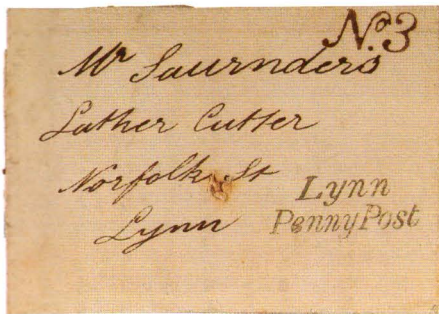 No. 3
Mr Saurnders
Lather Cutter
Norfolk St
Lynn
Lynn
Penny Post